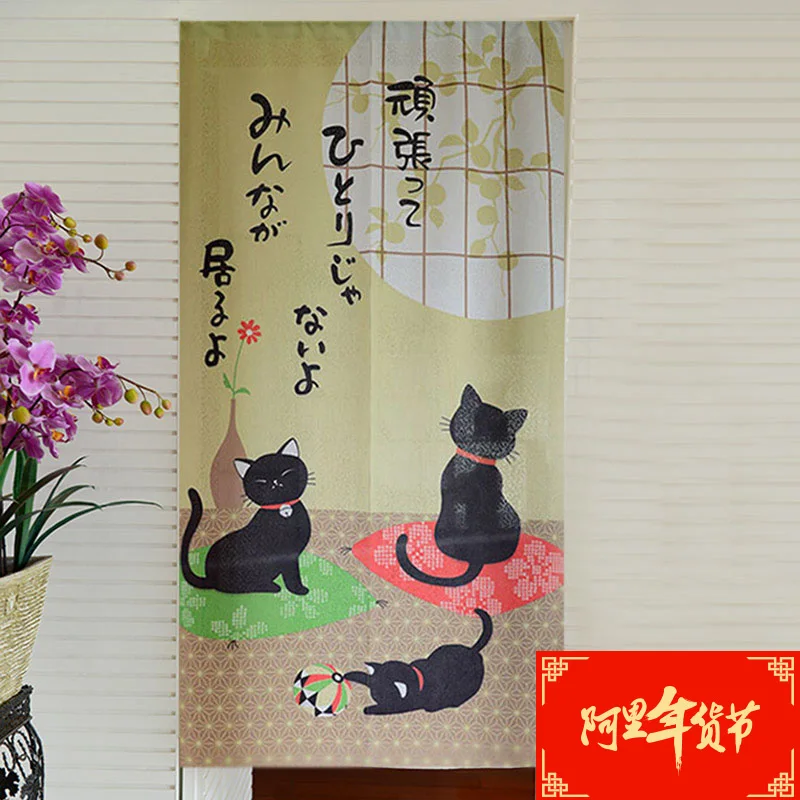 頑張って
ひとりじゃ
ないよ
みんなが
居るよ
阿里年货节